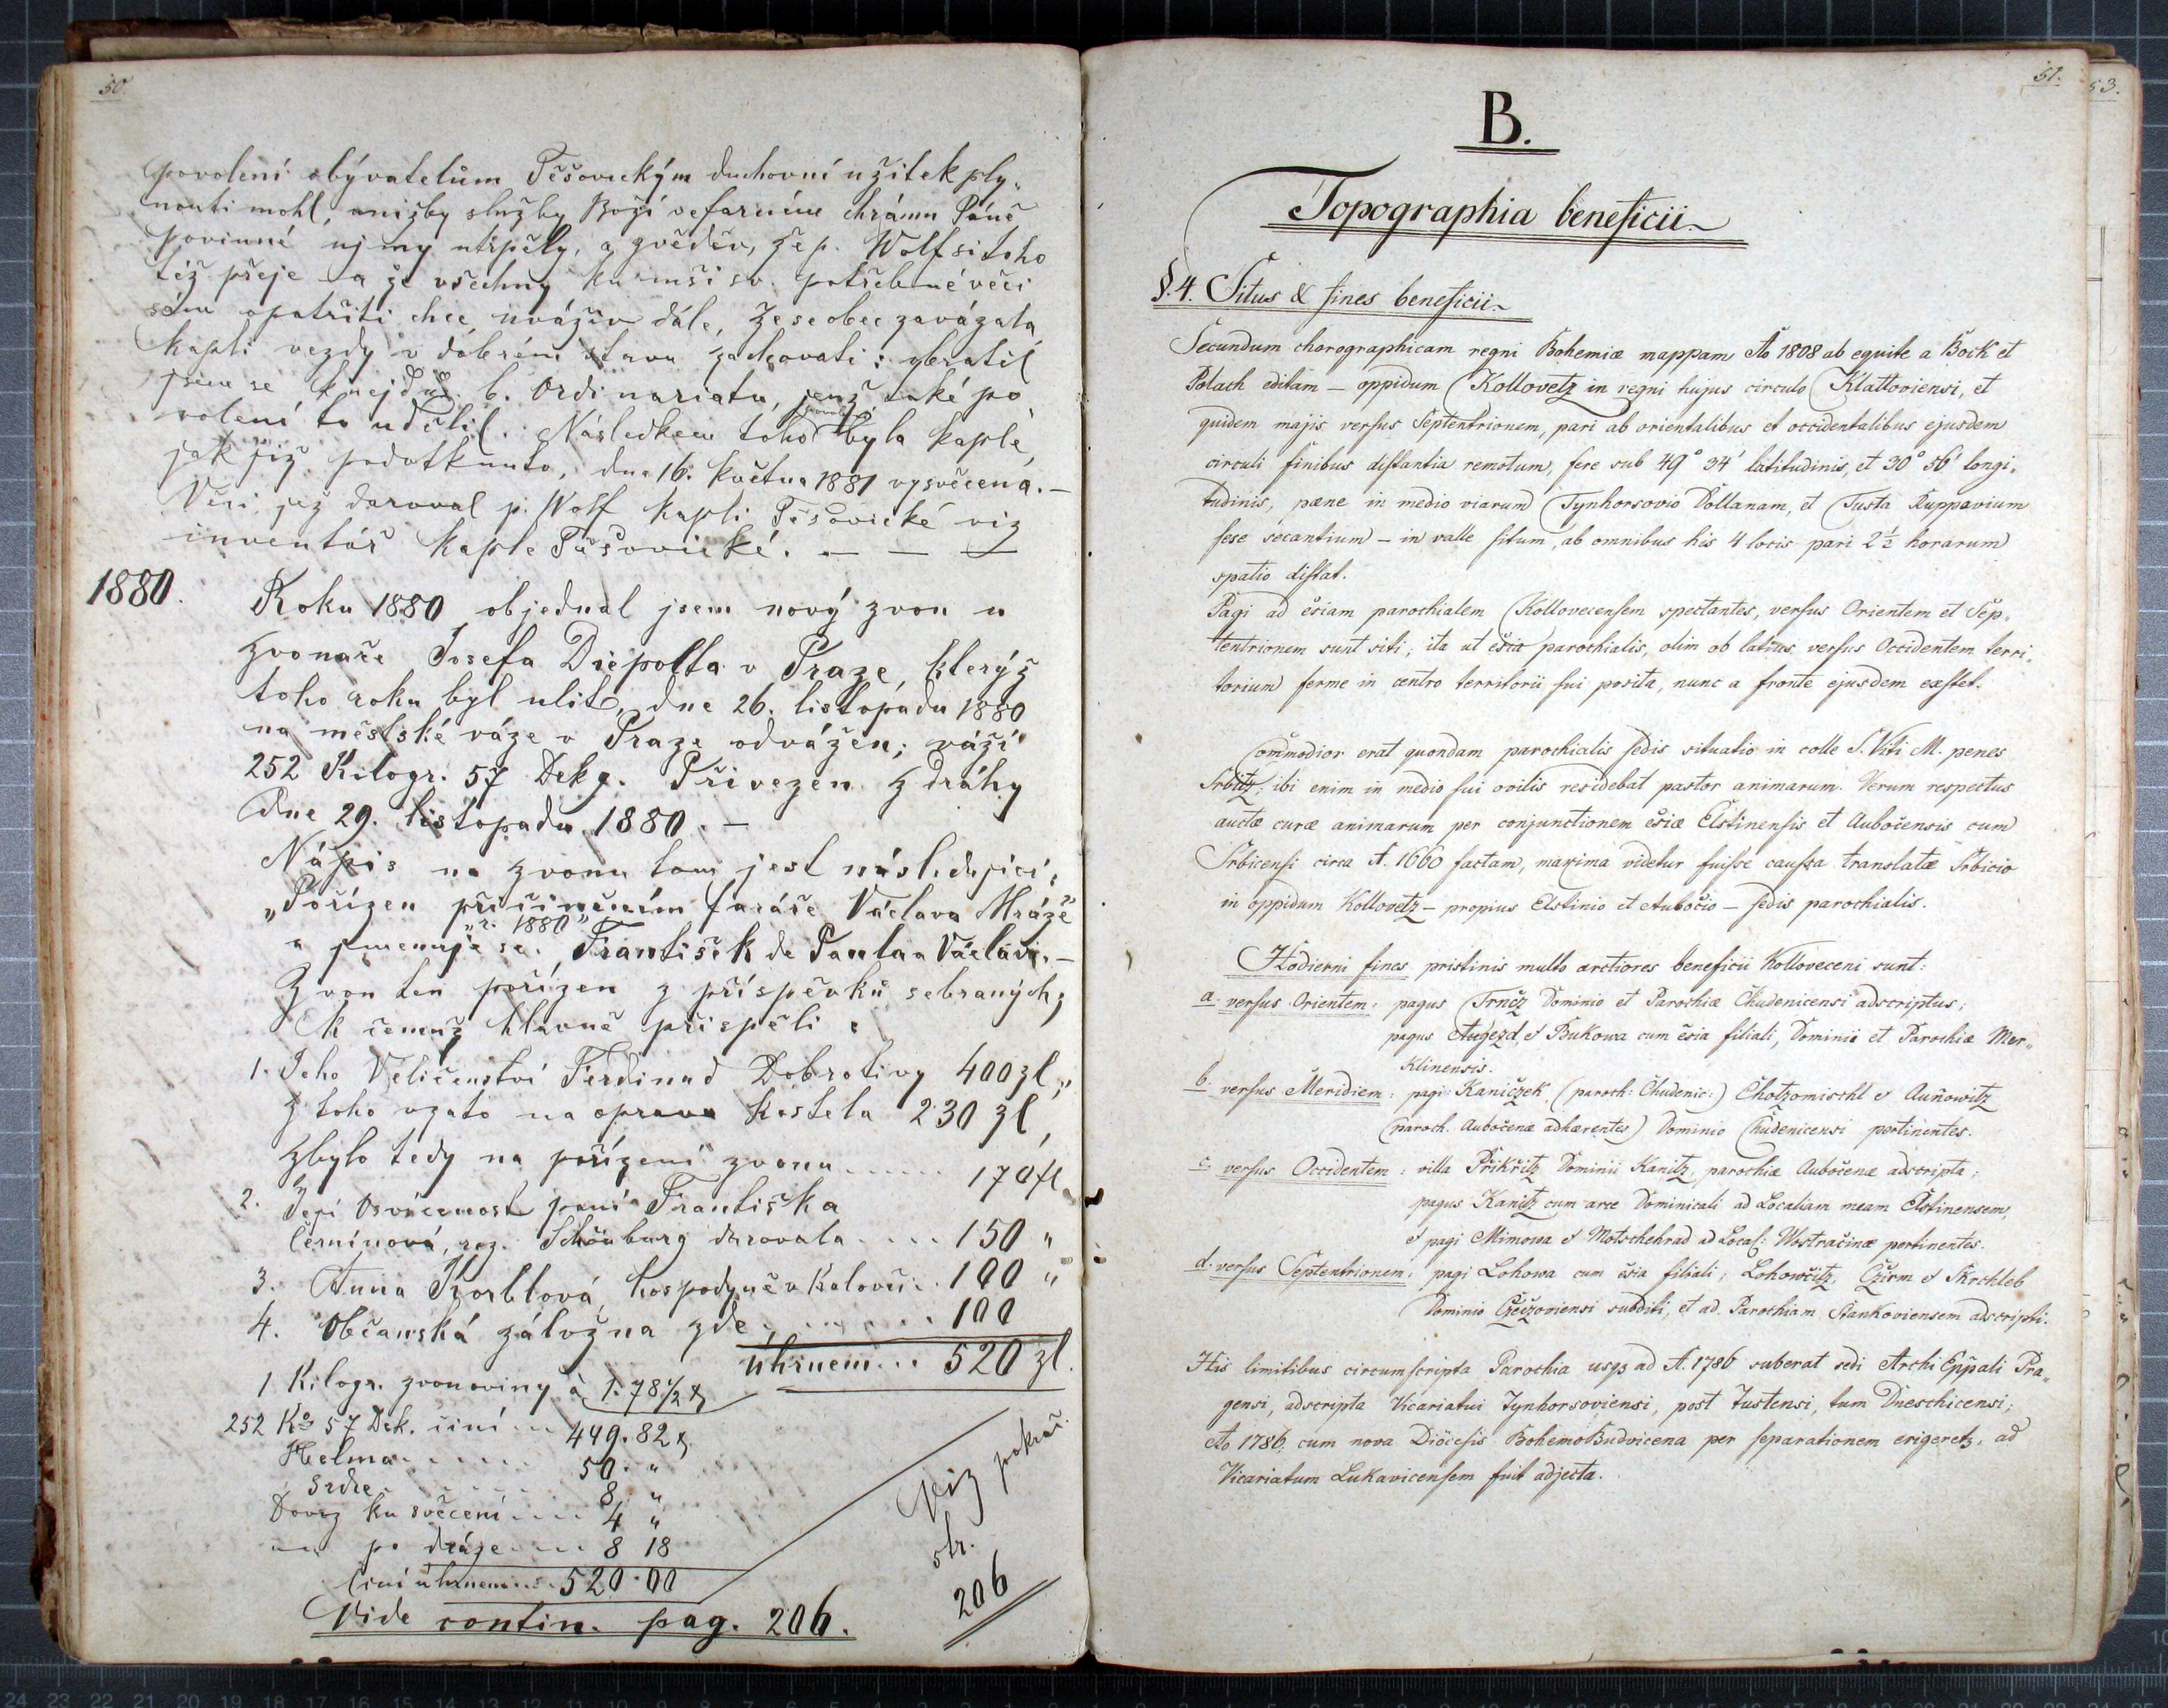 50.
povolení obývatelům Těšovickým duchovní užitek ply„
nouti mohl, anižby služby Boží ve farním chrámu Páně
povinné ujmy utrpěly, a zvěděv, že p. Wolf si toho
též přeje a že všechny ku mši sv. potřebné věci
sám opatřiti chce, uváživ dále, že se obec zavázala
kapli vezdy v dobrém stavu zachovati: obrátil
jsem se k nejdů. b. Ordinariatu, jenž také po„
volení to udělil. Následkem toho byla kaple,
jak již podotknuto, dne 16. května 1881 vysvěcena. —
Věci jež daroval p. Wolf kapli Těšovické viz
inventář kaple Těšovické. — — —
1880.
Roku 1880 objednal jsem nový zvon u
zvonaře Josefa Diepolta v Praze, kterýž
toho roku byl ulit, dne 26. listopadu 1880
na městské váze v Praze odvážen; váží
252 Kilogr. 57 Dekg. Přivezen z dráhy
dne 29. listopadu 1880. —
Nápis na zvonu tom jest následující:
„Pořízen přičiněním faráře Václava Mráze
„r. 1880"
a jmenuje se: František de Paula a Václav. —
Zvon ten pořízen z příspěvků sebraných,
k čemuž hlavně přispěli:
1. Jeho Veličenství Ferdinad Dobrotivy 400 zl„
z toho vzato na oprava kostela 230 zl,
zbylo tedy na pořízení zvonu ...... 170 fl.
2. Její Osvícenost paní Františka
Černínová, roz. Schönburg darovala .... 150 "
3. Anna Korblová, hospodyně v Kolovči . 100 "
4. Občanská záložna zde ........ 100
úhrnem ... 520 zl.
1 Kilogr. zvonoviny à 1. 78 1/2 x
252 Ko 57 Dek. činí ... 449. 82 x
Helma ...... 50. "
Srdce ...... 8. "
Dovoz ku svěcení .... 4 "
" po dráze .... 8 18
činí úhrnem ... 520 . 00
Vide contin. pag. 206.
Viz pokrač.
str.
206
51.
53.
B.
Topographia beneficii
§. 4. Situs & fines beneficii
Secundum chorographicam regni Bohemiæ mappam Ao 1808 ab equite a Bock et
Polach editam — oppidum Kollovetz in regni hujus circulo Klattoviensi, et
quidem majis versus Septentrionem, pari ab orientalibus et occidentalibus ejusdem
circuli finibus distantia remotum, fere sub 49° 34' latitudinis, et 30° 56' longi„
tudinis, pæne in medio viarum Tynhorsovio Dollanam, et Tusta Ruppavium
sese secantium — in valle situm, ab omnibus his 4 locis pari 2 1/2 horarum
spatio distat.
Pagi ad ēsiam parochialem Kollovecensem spectantes, versus Orientem et Sep„
tentrionem sunt siti; ita ut ēsia parochialis, olim ob latius versus Occidentem terri„
torium ferme in centro territorii sui posita, nunc a fronte ejusdem exstet.
Commodior erat quondam parochialis sedis situatio in colle S. Viti M. penes
Srbitz; ibi enim in medio sui ovilis residebat pastor animarum. Verum respectus
auctæ curæ animarum per conjunctionem ēsiæ Elstinensis et Aubočensis cum
Srbicensi circa A. 1660 factam, maxima videtur fuisse caussa translatæ Srbicio
in oppidum Kollovetz — propius Elstinio et Aubočio — sedis parochialis.
Hodierni fines pristinis multo arctiores beneficii Kolloveceni sunt:
a. versus Orientem: pagus Trnčz Dominio et Parochiæ Chudenicensi adscriptus;
pagus Augezd, & Bukowa cum ēsia filiali, Dominii et Parochiæ Mer„
klinensis.
b. versus Meridiem: pagi Kaniczek, (paroch: Chudenic:) Chotzomischl & Auňowitz
(paroch. Aubočenæ adhærentes) Dominio Chudenicensi pertinentes.
c. versus Occidentem: villa Přikřitz Dominii Kanitz, parochiæ Aubočenæ adscripta;
pagus Kanitz cum arce Dominicali ad Localiam meam Elstinensem,
& pagi Mimowa & Motschehrad ad Local: Wostračinæ pertinentes.
d. versus Septentrionem: pagi Lohowa cum ēsia filiali; Lohowčitz, Czerm & Skrchleb
Dominio Czečzoviensi subditi, et ad Parochiam Stankoviensem adscripti.
His limitibus circumscripta Parochia usq3 ad A. 1786 suberat sedi Archi Eppali Pra„
gensi, adscripta Vicariatui Tynhorsoviensi, post Tustensi, tum Dneschicensi;
Ao 1786. cum nova Diöcesis BohemoBudvicena per separationem erigeret3, ad
Vicariatum Lukavicensem fuit adjecta.